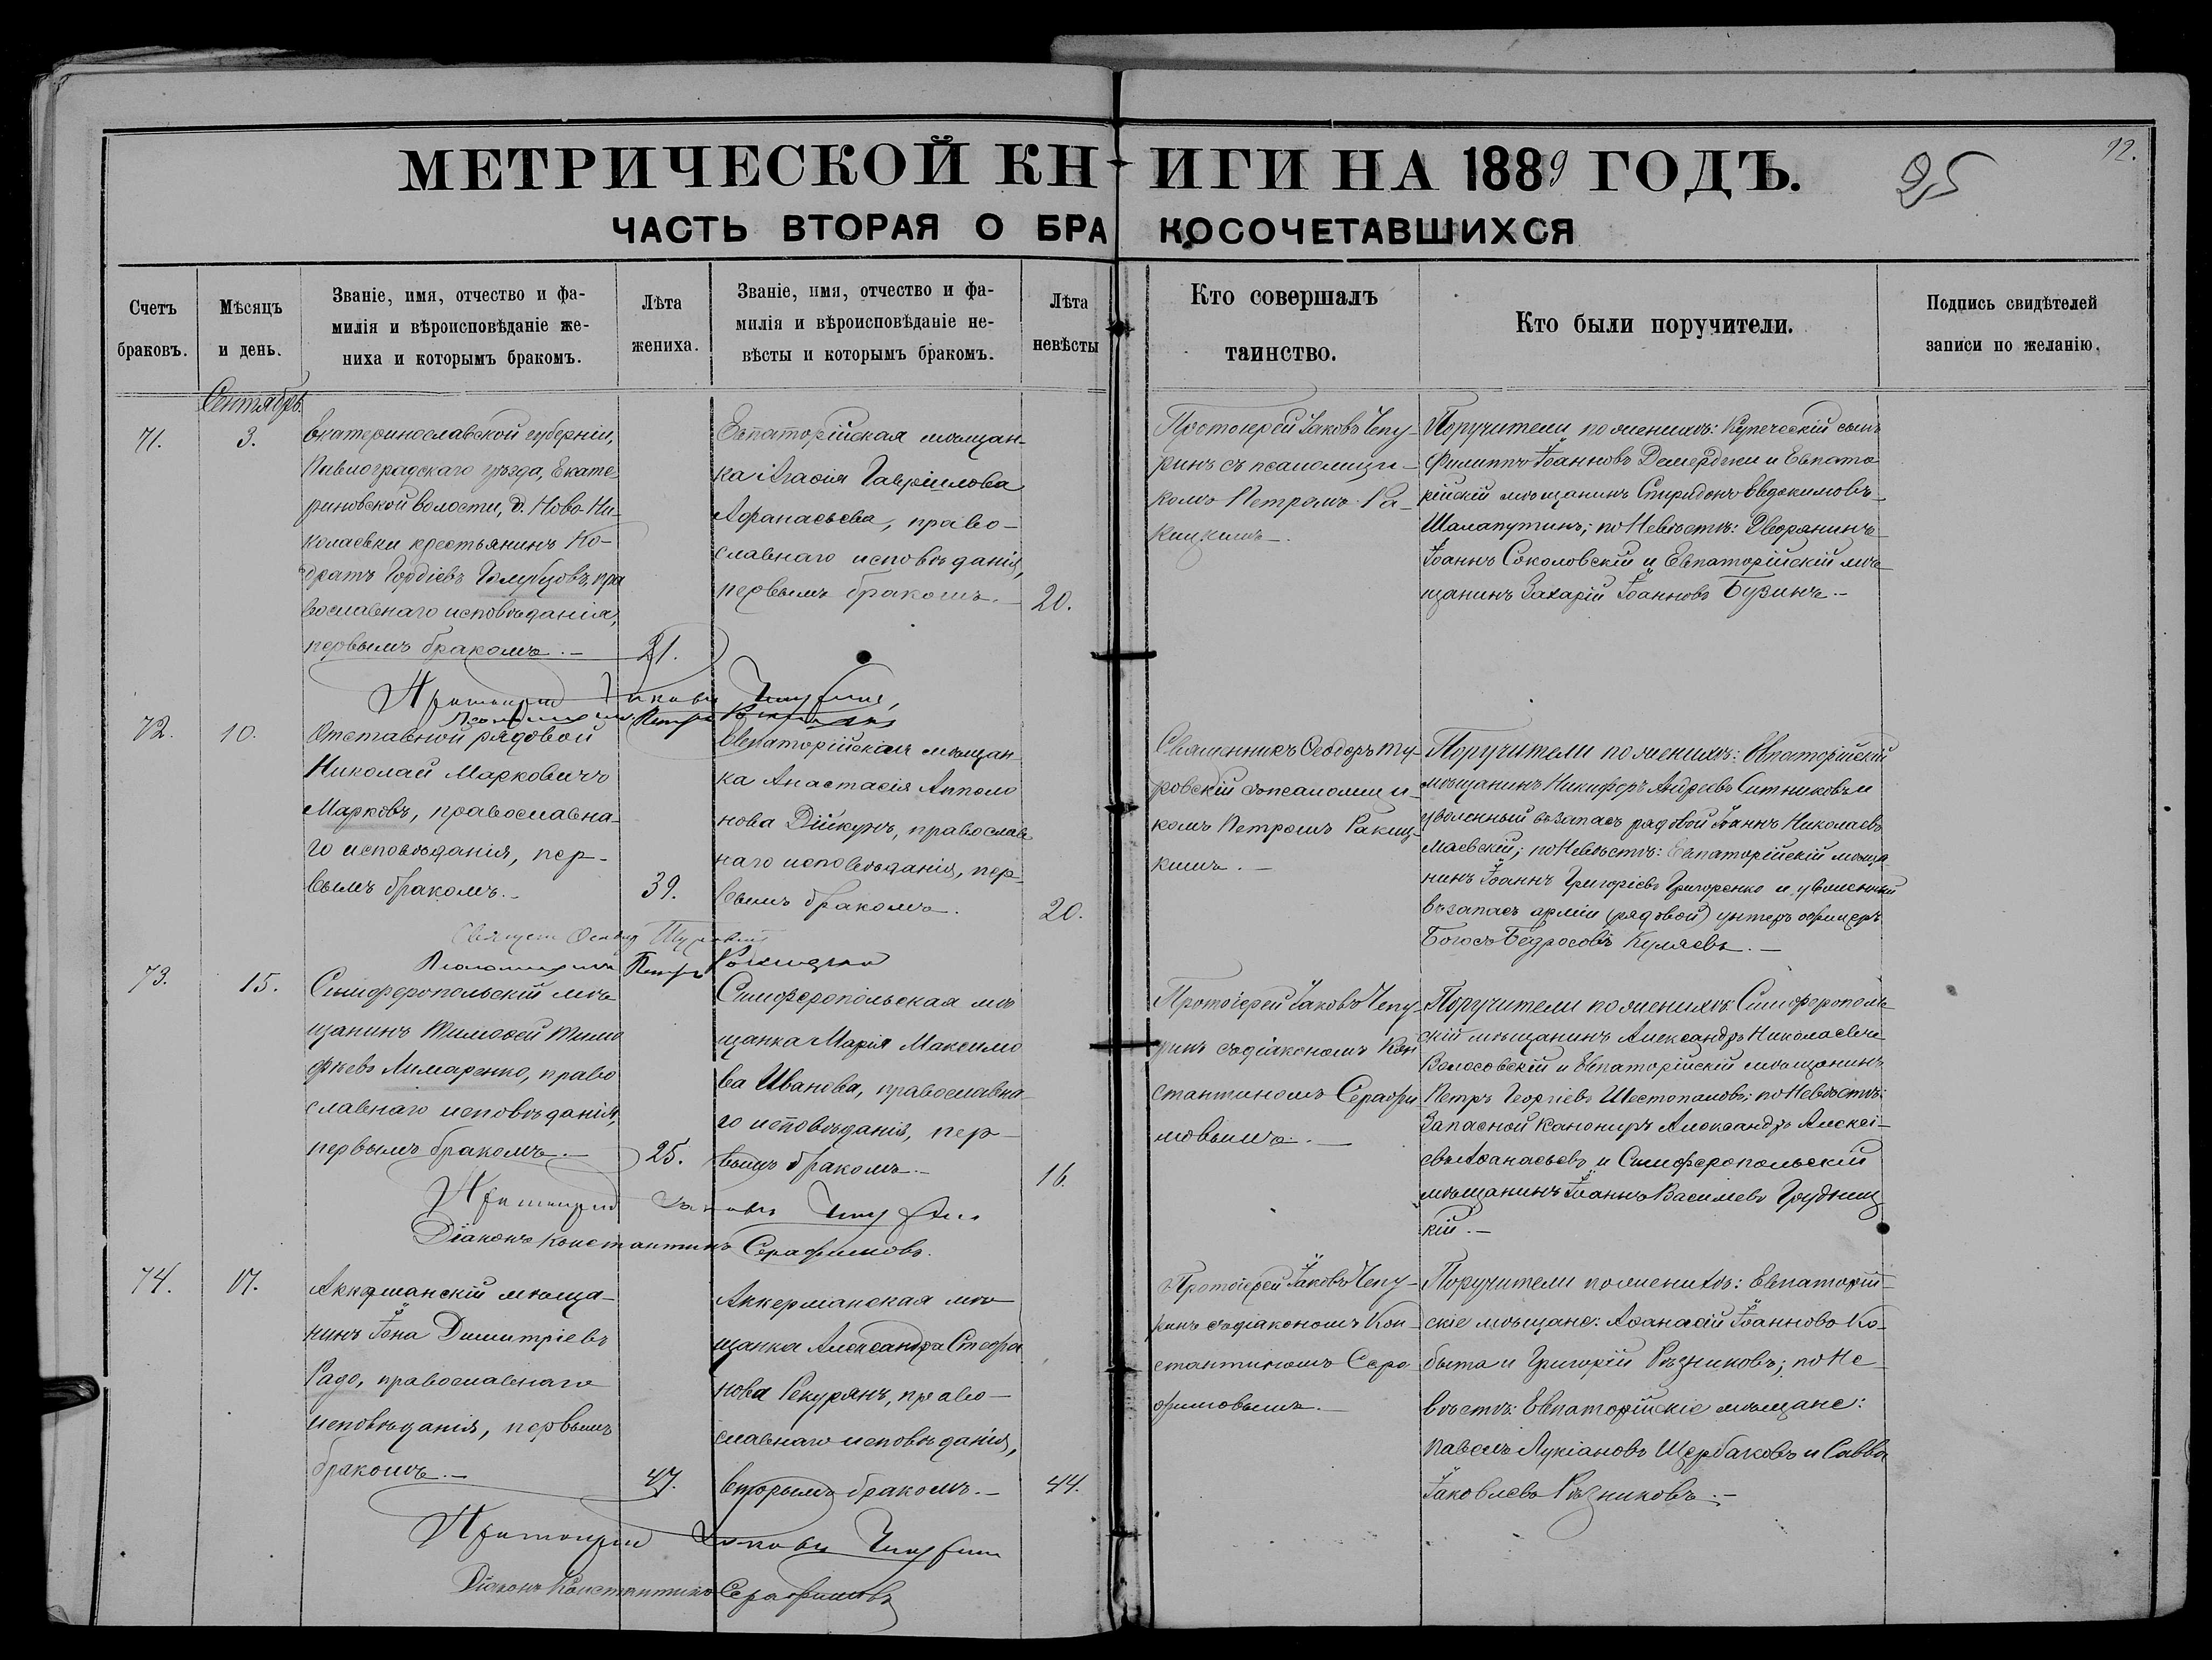 МЕТРИЧЕСКОЙ КНИГИ НА 1889 ГОДЪ.
25
12.
ЧАСТЬ ВТОРАЯ О БРАКОСОЧЕТАВШИХСЯ
Счетъ
браковъ.
Мѣсяцъ
и день.
Званіе, имя, отчество и фа-
милія и вѣроисповѣданіе же-
ниха и которымъ бракомъ.
Лѣта
жениха.
Званіе, имя, отчество и фа-
милія и вѣроисповѣданіе не-
вѣсты и которымъ бракомъ.
Лѣта
невѣсты
Кто совершалъ
таинство.
Кто были поручители.
Подпись свидѣтелей
записи по желанію.
Сентябрь.
71.
3.
Екатеринославской губерніи,
Павлоградскаго уѣзда, Екате
риновской волости, д. Ново-Ни-
колаевки крестьянинъ Ко-
дратъ Гордіевъ Голубцовъ, пра
вославнаго исповѣданія,
первымъ бракомъ.-
21.
Евпаторійская мѣщан-
ка Агафія Гавріилова
Афанасьева, право-
славнаго исповѣданія,
первымъ бракомъ.-
20.
Протоіерей Іаковъ Чепу-
ринъ съ псаломщи-
комъ Петромъ Ра-
кицкимъ-.
Поручители по женихѣ: Купеческій сынъ
Филиппъ Іоанновъ Демерджи и Евпато
рійскій мѣщанинъ Спиридонъ Евдокимовъ
Шалапутинъ; по Невѣстѣ: Дворянинъ
Іоаннъ Соколовскій и Евпаторійскій мѣ-
щанинъ Захарій Іоанновъ Бузинъ.-
Протоіерей Іаковъ Чепуринъ,
Псаломщикъ Петръ Ракицкій
72.
10.
Отставной рядовой
Николай Марковичъ
Марковъ, православна-
го исповѣданія, пер-
вымъ бракомъ.-
39.
Евпаторійская мѣщан-
ка Анастасія Апполо
нова Дійкунъ, православ
наго исповѣданія, пер-
вымъ бракомъ.
20.
Священникъ Ѳеодоръ Ту-
ровскій съ псаломщи-
комъ Петромъ Ракиц-
кимъ.-
Поручители по женихѣ: Евпаторійскій
мѣщанинъ Никифоръ Андреевъ Ситниковъ и
уволенный въ запасъ рядовой Іоаннъ Николаевъ
Маевскій; по Невѣстѣ: Евпаторійскій мѣща
нинъ Іоаннъ Григоріевъ Григоренко и уволенный
въ запасъ арміи (рядовой) унтеръ офицеръ
Богосъ Бедросовъ Куляевъ.-
Псаломщикъ Петръ Ракицкій
73.
15.
Симферопольскій мѣ-
щанинъ Тимоѳей Тимо
фѣевъ Лимаренко, право
славнаго исповѣданія,
первымъ бракомъ.-
25.
Симферопольская мѣ
щанка Марія Максимо
ва Иванова, православна-
го исповѣданія, пер-
вымъ бракомъ.-
16.
Протоіерей Іаковъ Чепу-
ринъ съ діакономъ Кон
стантиномъ Серафи
мовымъ.-
Поручители по женихѣ: Симферополь
скій мѣщанинъ Александръ Николаевъ
Волосовскій и Евпаторійскій мѣщанинъ
Петръ Георгіевъ Шестопаловъ; по Невѣстѣ:
Запасной канониръ Александръ Алексі-
евъ Аѳанасьевъ и Симферопольскій
мѣщанинъ Іоаннъ Василіевъ Грудниц
кій.-
Протоіерей Іаковъ Чепуринъ
Діаконъ Константинъ Серафимовъ.
74.
17.
Аккерманскій мѣща-
нинъ Іона Димитріевъ
Радо, православнаго
исповѣданія, первымъ
бракомъ.-
47.
Аккерманская мѣ-
щанка Александра Стефа
нова Рекурянъ, право-
славнаго исповѣданія,
вторымъ бракомъ.-
44.
Протоіерей Іаковъ Чепу-
ринъ съ діакономъ Кон-
стантиномъ Сера
фимовымъ.-
Поручители по женихѣ: Евпаторій-
скіе мѣщане: Аѳанасій Іоанновъ Ко-
быта и Григорій Рѣзниковъ; по Не-
вѣстѣ: Евпаторійскіе мѣщане:
Павелъ Лукіановъ Щербаковъ и Савва
Іаковлевъ Рѣзниковъ.-
Протоіерей Іаковъ Чепуринъ
Діаконъ Константинъ Серафимовъ